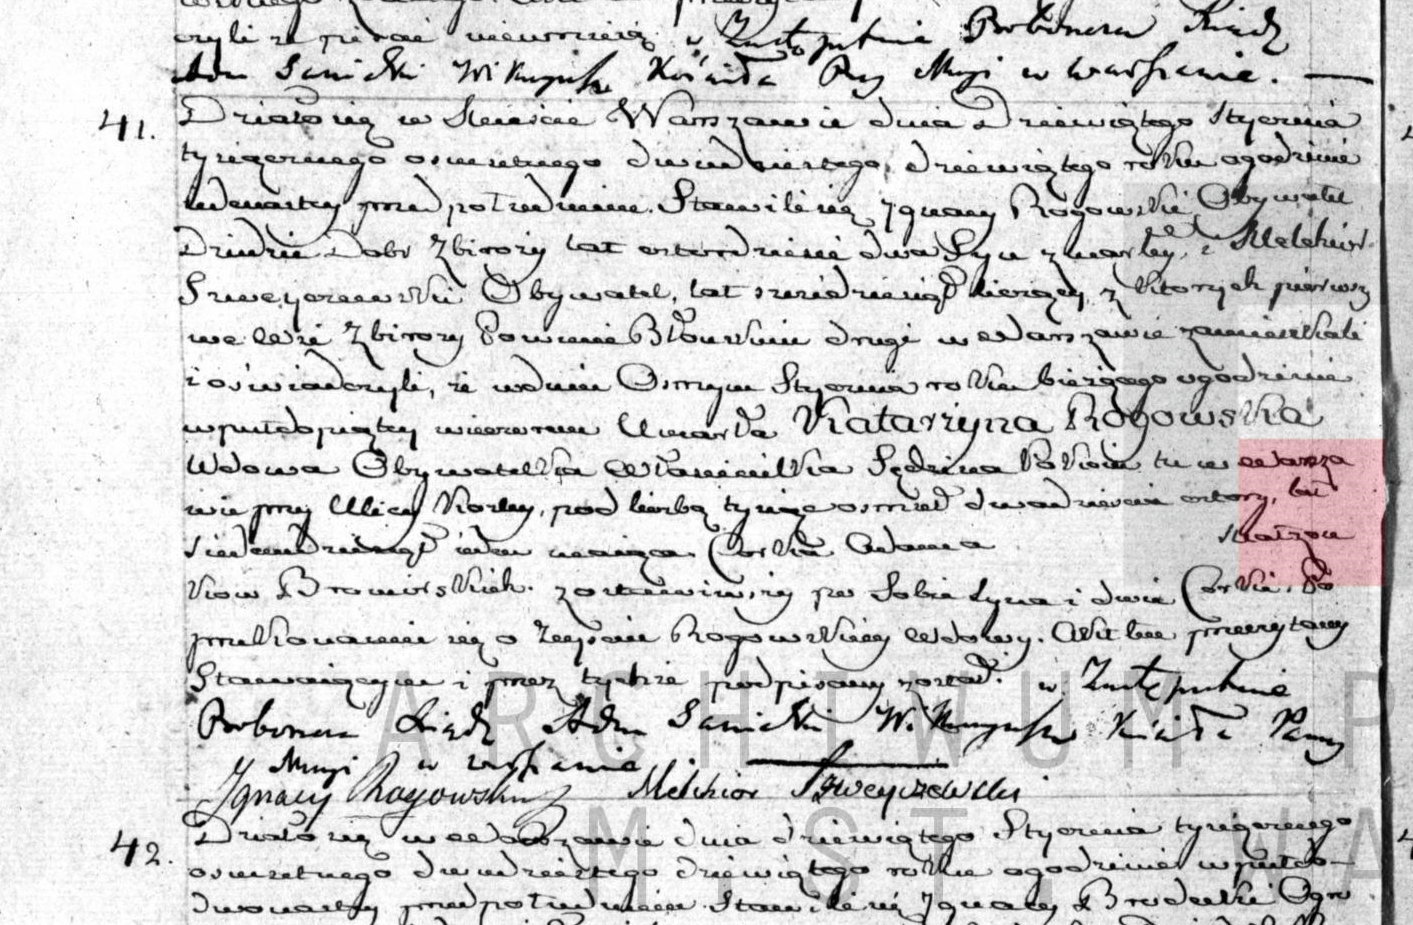 czyli iż pisać nieumieją w Zastępstwie Proboszcza Xiądz
Adm Sanicki Wikaryusz Kościoła Pny Maryi w Warszawie. —
41. Działo się w Mieście Warszawie dnia Dziewiątego Stycznia
tysiącznego osmsetnego dwudziestego dziewiątego roku o godzinie
jedenastej przed południem. Stawili się Ignacy Rogowski Obywatel
Dziedzic Dobr Zbiroży lat czterdzieści dwa Syn zmarłey, i Melchior
Szweycerewski Obywatel, lat liczący, z których pierwszy
we Wsi Zbiroży Powiecie Błońskim drugi w Warszawie zamieszkali
i oświadczyli, iż w dniu Osmym Stycznia roku bieżącego o godzinie
wpuł do piątey wieczorem Umarła Katarzyna Rogowska
Wdowa Obywatelka Sędzina Pokoiu tu w Warsza
wie przy Ulicy Koziey, pod liczbą tysiąc osmset dwadzieścia cztery, lat
siedemdziesiąt ieden maiąca Corka Adama Małżon
kow Bromirskich. zostawiwszy po Sobie Syna i dwie Corki. Po
przekonaniu się o Zeyściu Rogowskiey Wdowy. Akt ten przeczytany
Stawaiącym i przez tychże podpisany został. w Zastępstwie
Proboszcza Xiądz Adm Sanicki Wikaryusz Kościoła Panny
Maryi w Warszawie
Ignacy Rogowski Melchior Szweycerewski
42. Działo się w Warszawie dnia dziewiątego Stycznia tysiącznego
osmsetnego dwudziestego dziewiątego roku o godzinie wpuł do
dwunastey przed południem Stawili się Ignacy
ARCHIWUM P
M. ST. WA